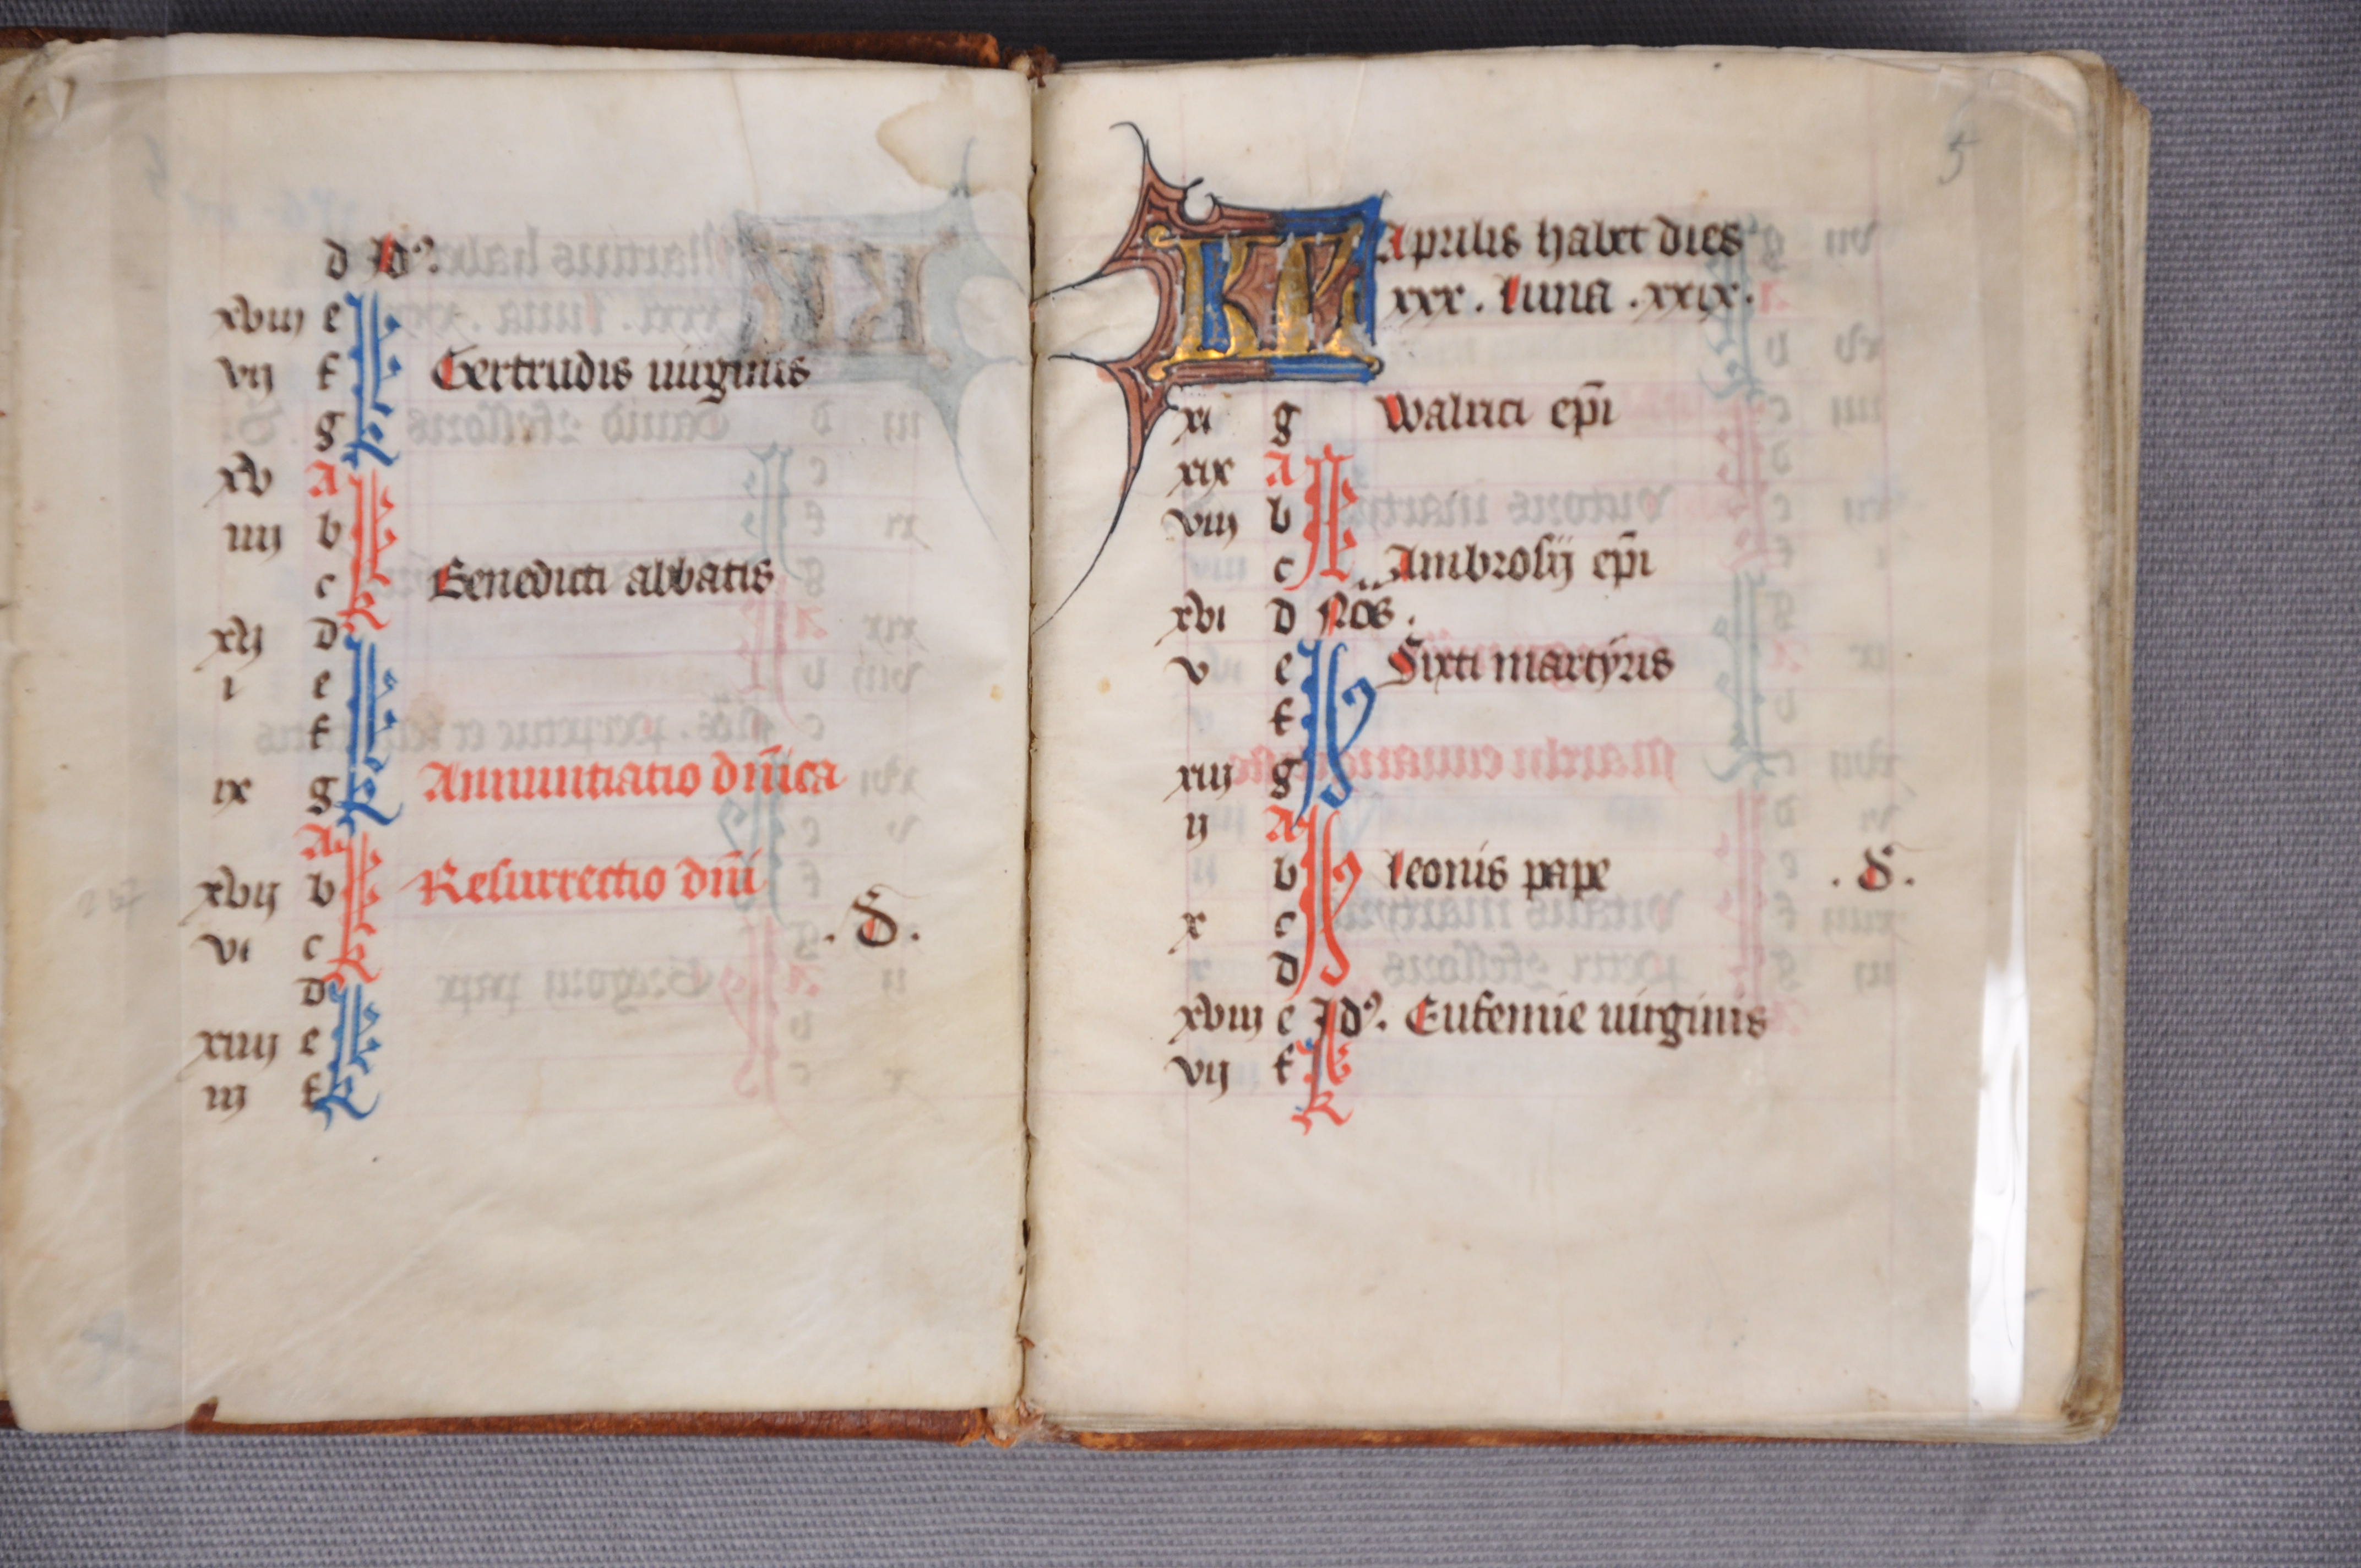 d Id9.
xviii e
vij f Gertrudis uirginis
g
xv A
iiij b
c Benedicti abbatis
xij d
i e
f
ix g Annuntiatio dn̄ica
A
xvij b Resurrectio dn̄i
vi c .S.
d
xiiij e
iij f
5
KL Aprilis habet dies
xxx. luna .xxix.
xi g Walrici ep̄i
xix A
viij b
c Ambrosij ep̄i
xvi d Nōs.
v e Sixti martyris
f
xiij g
ij A
b leonis pape .S.
x c
d
xviij e Id9. Eufemie uirginis
vij f